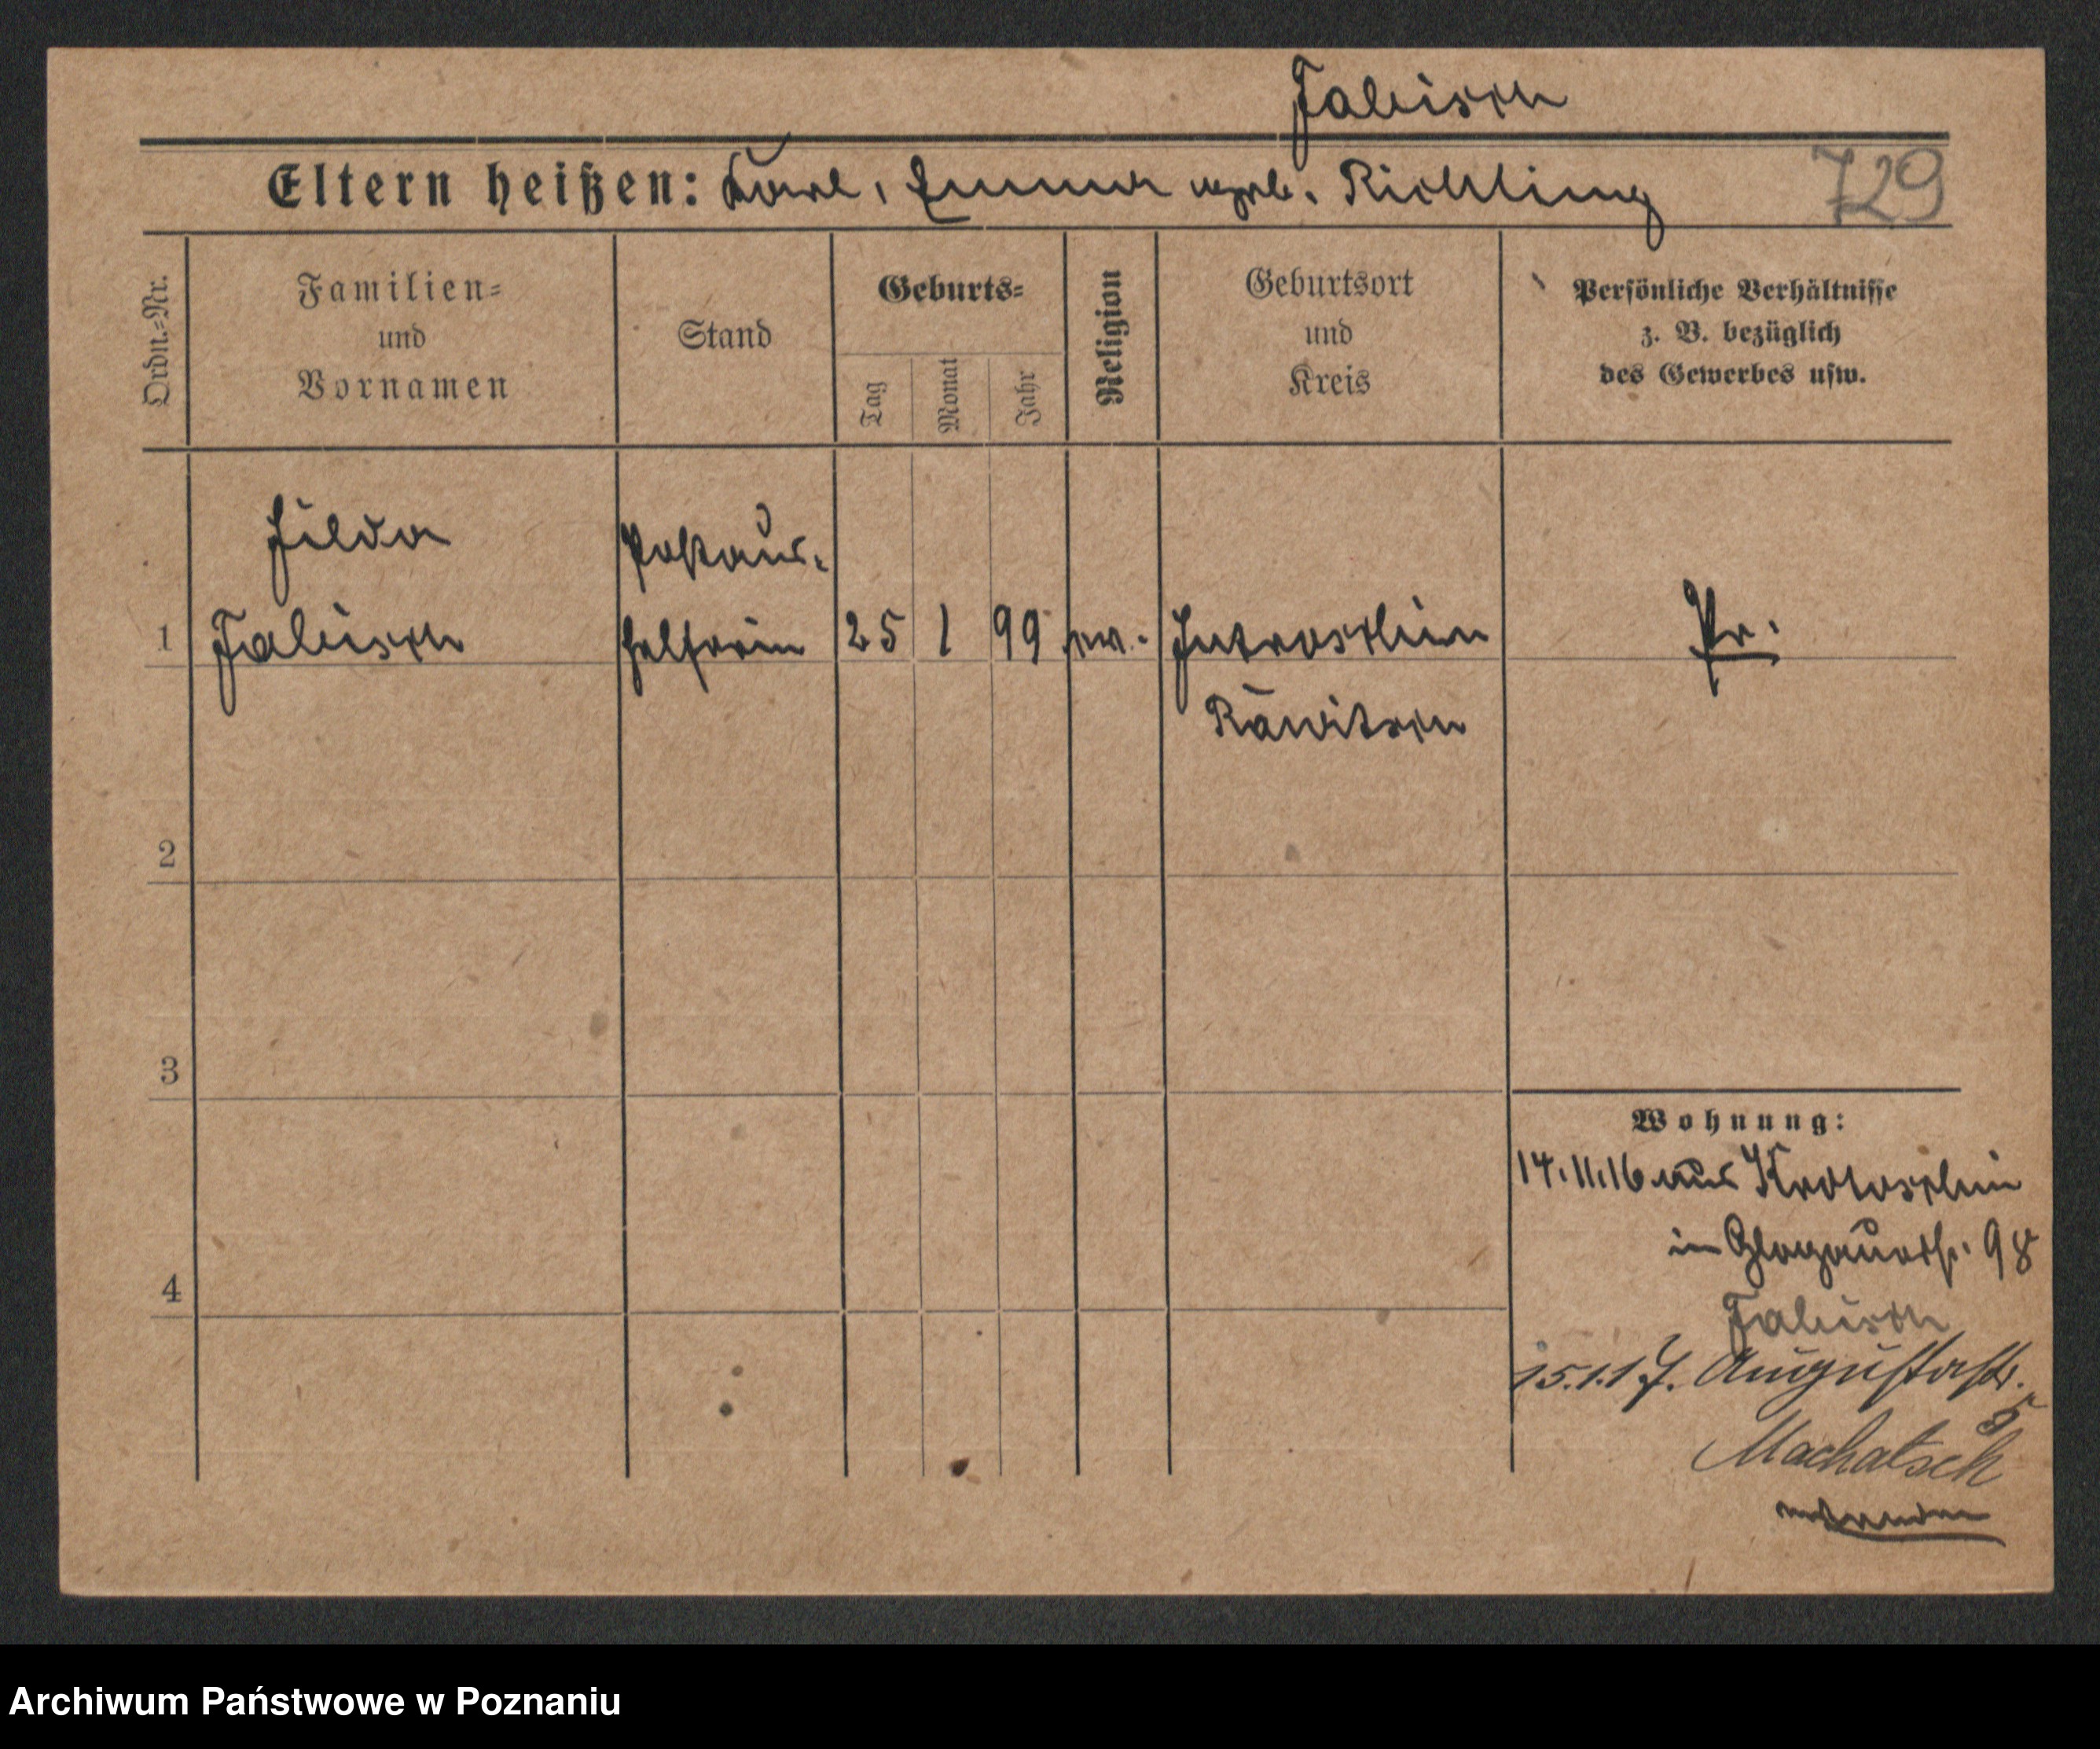 Fabisch
Eltern heißen: Karl, Emma geb. Richling
729
Ordn.-Nr.
Familien-
und
Vornamen
Stand
Geburts-
Tag
Monat
Jahr
Religion
Geburtsort
und
Kreis
Persönliche Verhältnisse
z. B. bezüglich
des Gewerbes usw.
1
Hilda
Fabisch
Postaus-
helferin
25
1
99
ev.
Jutroschin
Rawitsch
Pr.
2
3
4
Wohnung:
14.11.16 aus Krotoschin
in Glogauerstr. 98
Fabisch
15.1.17. Augustastr.
5
Machatsch
Archiwum Państwowe w Poznaniu